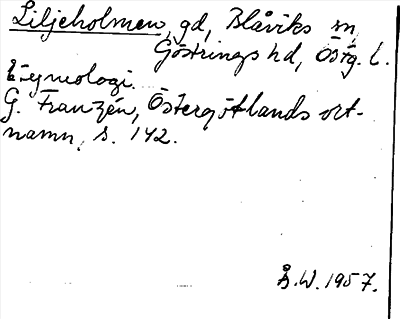 Liljeholmen, gd, Blåviks sn,
Göstrings hd, Östg. l.
Etymologi.
G. Franzén, Östergötlands ort-
namn, s. 142.
Å.W. 1957.